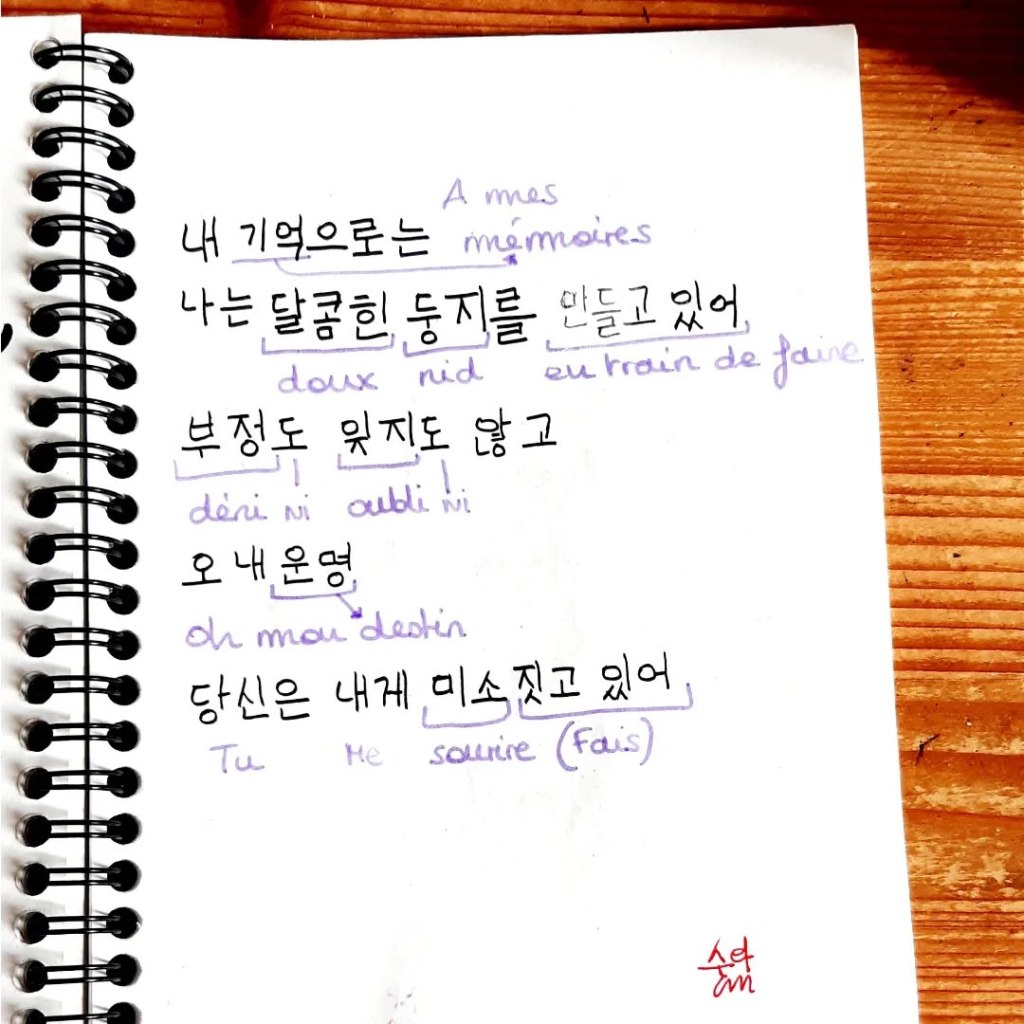 A mes
내 기억으로는 mémoires
나는 달콤힌 둥지를 만들고 있어
doux nid en train de faire
부정도 잊지도 않고
déni ni oubli ni
오 내 운명
oh mon destin
당신은 내게 미소 짓고 있어
Tu Me sourire (Fais)